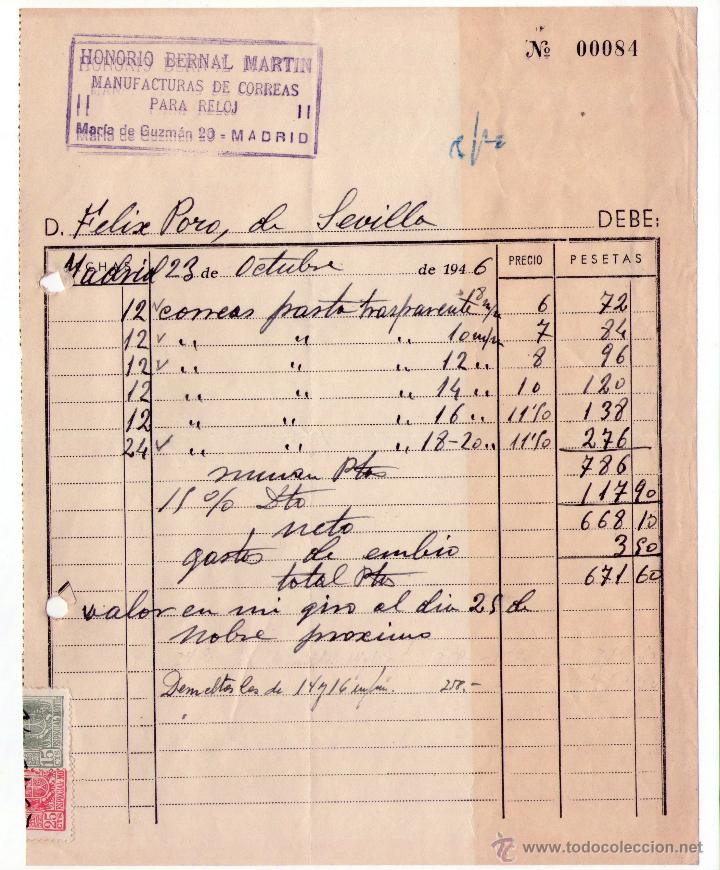 HONORIO BERNAL MARTIN
MANUFACTURAS DE CORREAS
PARA RELOJ
María de Guzmán 29 - MADRID
Nº 00084
D. Felix Poro, de Sevilla DEBE:
Madrid 23 de Octubre de 1946 PRECIO PESETAS
12 correas pasta trasparente 8 m/m 6 72
12 " " " 10 m/m 7 84
12 " " " 12 " 8 96
12 " " " 14 " 10 120
12 " " " 16 " 11'50 138
24 " " " 18-20 " 11'50 276
suman Ptas 786
15 % Dto 117 90
neto 668 10
gastos de embio 3 50
total Ptas 671 60
valor en mi giro al dia 25 de
Nobre proximo
Devueltas las de 14 y 16 m/m. 258.-
15 CTS
25 CTS
www.todocoleccion.net